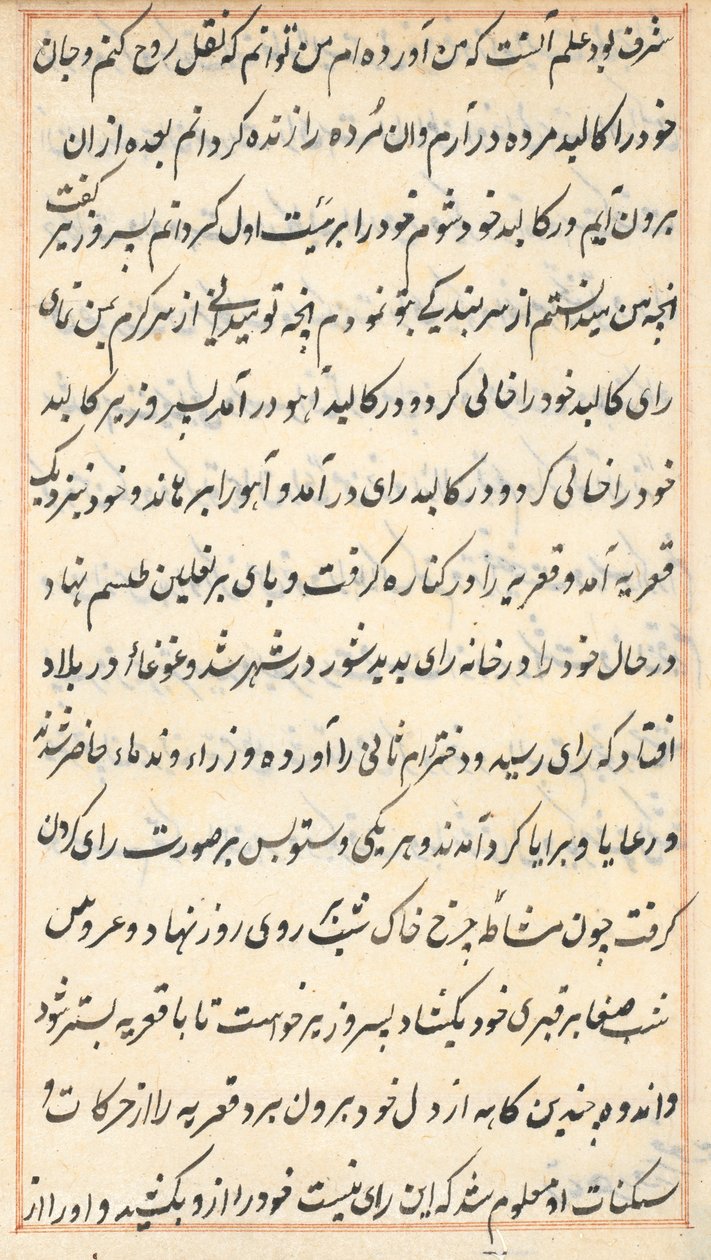 شرف بود علم آنست که من آورده ام من توانم که نقل روح کنم و جان
خود را کالبد مرده درآرم وان مُرده را زنده کردانم بعده از ان
برون آیم ور کالبد خود شوم خود را بر هیئت اول کردانم پسر وزیر کفت
انچه من میدانستم از سر بندیکی بتو نمودم انچه تو میدانی از سر کرم بمن نمای
رای کالبد خود را خالی کرد و در کالبد آهو در آمد پسر وزیر کالبد
خود را خالی کرد و در کالبد رای در آمد و آهو را برماند و خود نبزدیک
قعریه آمد و قعریه را در کناره کرفت و بای بر نعلین طلسم نهاد
در حال خود را در خانه رای بدید شور در شهر شد و غوغاء در بلاد
افتاد که رای رسید و دختر ام ثانی را آورده وزراء و ندماء حاضر شدند
و رعایا و برایا کرد آمدند و هر یکی دستوبس بر صورت رای کردن
کرفت چون مشاطه چرخ خاک شب بر روی روز نهاد و عروس
شب صفا بر قبری خود بکشاد پسر وزیر خواست تا با قعریه بستر شود
و اندوه چندین کاهه از دل خود برون برد قعریه را از حرکات و
سکنات او معلوم شد که این رای نیست خود را ازو بکشید و او را از